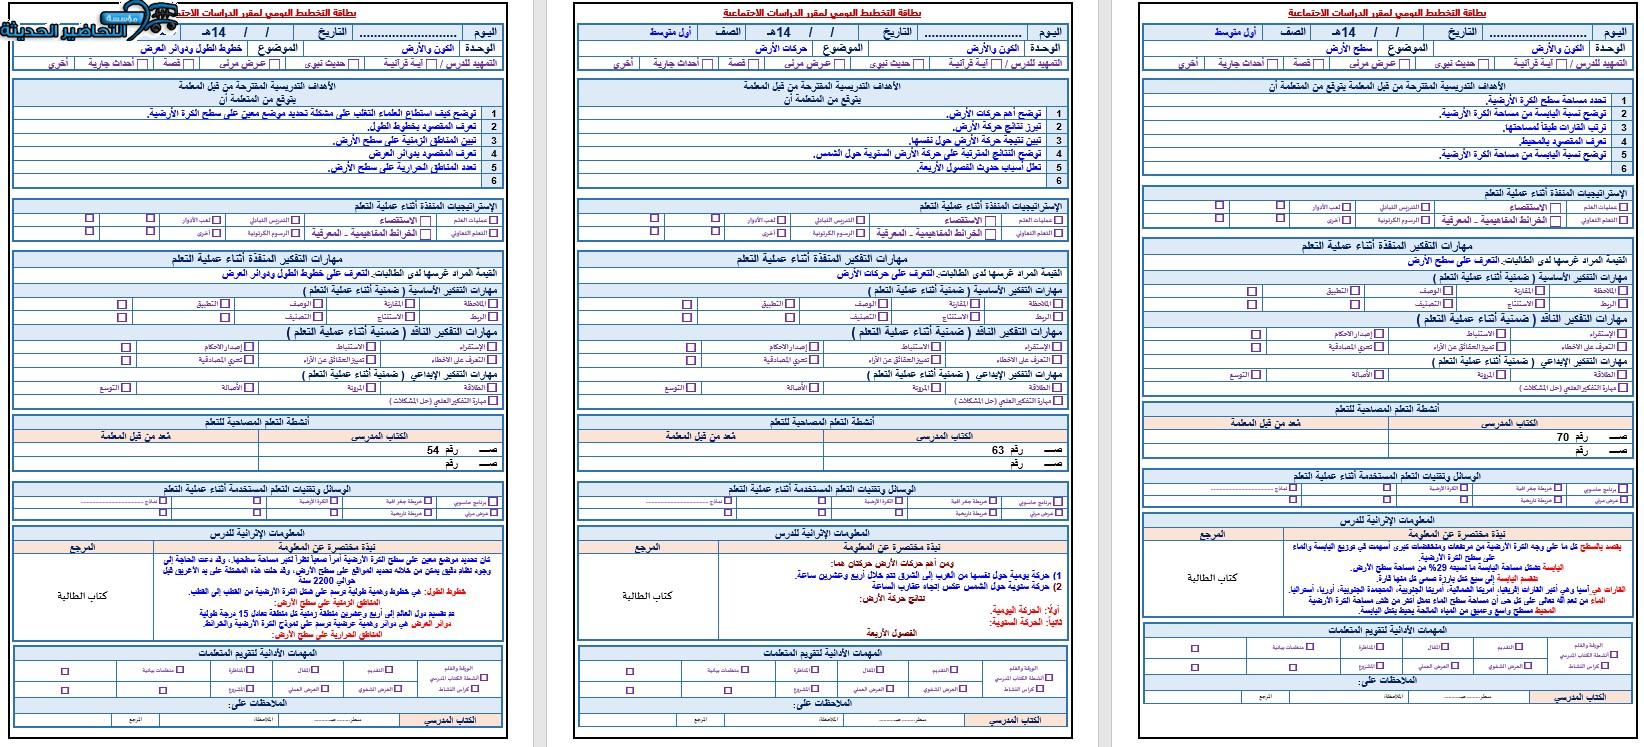 بطاقة التخطيط اليومي لمقرر الدراسات الاجتماعية
اليوم ............................ التاريخ / / 14هـ الصف أول متوسط
الوحدة الكون والأرض الموضوع سطح الأرض
التمهيد للدرس / آية قرآنية حديث نبوي عرض مرئي قصة أحداث جارية أخرى
الأهداف التدريسية المقترحة من قبل المعلمة يتوقع من المتعلمة أن
1 تحدد مساحة سطح الكرة الأرضية.
2 توضح نسبة اليابسة من مساحة الكرة الأرضية.
3 ترتب القارات طبقاً لمساحتها.
4 تعرف المقصود بالمحيط.
5 توضح نسبة اليابسة من مساحة الكرة الأرضية.
6
الإستراتيجيات المنفذة أثناء عملية التعلم
عمليات العلم الاستقصاء التدريس التبادلي لعب الأدوار
التعلم التعاوني الخرائط المفاهيمية - المعرفية الرسوم الكرتونية أخرى
مهارات التفكير المنفذة أثناء عملية التعلم
القيمة المراد غرسها لدى الطالبات. التعرف على سطح الأرض
مهارات التفكير الأساسية ( ضمنية أثناء عملية التعلم )
الملاحظة المقارنة الوصف التطبيق
الربط الاستنتاج التصنيف
مهارات التفكير الناقد ( ضمنية أثناء عملية التعلم )
الإستقراء الاستنباط إصدار الاحكام
التعرف على الاخطاء تمييز الحقائق عن الآراء تحري المصادقية
مهارات التفكير الإبداعي ( ضمنية أثناء عملية التعلم )
الطلاقة المرونة الأصالة التوسع
مهارة التفكير العلمي (حل المشكلات )
أنشطة التعلم المصاحبة للتعلم
الكتاب المدرسي مُعد من قبل المعلمة
صـــ رقم 70
صـــ رقم
الوسائل وتقنيات التعلم المستخدمة أثناء عملية التعلم
برنامج حاسوبي خريطة جغرافية الكرة الأرضية نماذج
عرض مرئي خريطة تاريخية
المعلومات الإثرائية للدرس
نبذة مختصرة عن المعلومة المرجع
يقصد بالسطح كل ما على وجه الكرة الأرضية من مرتفعات ومنخفضات كبرى أسهمت في توزيع اليابسة والماء
على سطح الكرة الأرضية.
اليابسة تشكل مساحة اليابسة ما نسبته 29% من مساحة سطح الأرض.
تنقسم اليابسة إلى سبع كتل بارزة تسمى كل منها قارة.
كتاب الطالبة
المحيط مسطح واسع وعميق من المياه المالحة يحيط بكتل اليابسة.
المهمات الأدائية لتقويم المتعلمات
الورقة والقلم التقديم المقال المناظرة منظمات بيانية
أنشطة الكتاب المدرسي
كراس النشاط العرض الشفوي العرض العملي المشروع
الملاحظات على:
الكتاب المدرسي سطر........صـ........ الملاحظة: المرجع
بطاقة التخطيط اليومي لمقرر الدراسات الاجتماعية
اليوم ............................ التاريخ / / 14هـ الصف أول متوسط
الوحدة الكون والأرض الموضوع حركات الأرض
التمهيد للدرس / آية قرآنية حديث نبوي عرض مرئي قصة أحداث جارية أخرى
الأهداف التدريسية المقترحة من قبل المعلمة
يتوقع من المتعلمة أن
1 توضح أهم حركات الأرض.
2 تبرز نتائج حركة الأرض.
3 تبين نتيجة حركة الأرض حول نفسها.
4 توضح النتائج المترتبة على حركة الأرض السنوية حول الشمس.
5 تعلل أسباب حدوث الفصول الأربعة.
6
الإستراتيجيات المنفذة أثناء عملية التعلم
عمليات العلم الاستقصاء التدريس التبادلي لعب الأدوار
التعلم التعاوني الخرائط المفاهيمية - المعرفية الرسوم الكرتونية أخرى
مهارات التفكير المنفذة أثناء عملية التعلم
القيمة المراد غرسها لدى الطالبات. التعرف على حركات الأرض
مهارات التفكير الأساسية ( ضمنية أثناء عملية التعلم )
الملاحظة المقارنة الوصف التطبيق
الربط الاستنتاج التصنيف
مهارات التفكير الناقد ( ضمنية أثناء عملية التعلم )
الإستقراء الاستنباط إصدار الاحكام
التعرف على الاخطاء تمييز الحقائق عن الآراء تحري المصادقية
مهارات التفكير الإبداعي ( ضمنية أثناء عملية التعلم )
الطلاقة المرونة الأصالة التوسع
مهارة التفكير العلمي (حل المشكلات )
أنشطة التعلم المصاحبة للتعلم
الكتاب المدرسي مُعد من قبل المعلمة
صـــ رقم 63
صـــ رقم
الوسائل وتقنيات التعلم المستخدمة أثناء عملية التعلم
برنامج حاسوبي خريطة جغرافية الكرة الأرضية نماذج
عرض مرئي خريطة تاريخية
المعلومات الإثرائية للدرس
نبذة مختصرة عن المعلومة المرجع
ومن أهم حركات الأرض حركتان هما:
1) حركة يومية حول نفسها من الغرب إلى الشرق تتم خلال أربع وعشرين ساعة.
2) حركة سنوية حول الشمس عكس إتجاه عقارب الساعة
كتاب الطالبة
نتائج حركة الأرض:
أولاً: الحركة اليومية.
ثانياً: الحركة السنوية:
الفصول الأربعة
المهمات الأدائية لتقويم المتعلمات
الورقة والقلم التقديم المقال المناظرة منظمات بيانية
أنشطة الكتاب المدرسي
كراس النشاط العرض الشفوي العرض العملي المشروع
الملاحظات على:
الكتاب المدرسي سطر........صـ........ الملاحظة: المرجع
مؤسسة
التحاضير الحديثة
بطاقة التخطيط اليومي لمقرر الدراسات الاجتم
اليوم ............................ التاريخ / / 14هـ
الوحدة الكون والأرض الموضوع خطوط الطول ودوائر العرض
التمهيد للدرس / آية قرآنية حديث نبوي عرض مرئي قصة أحداث جارية أخرى
الأهداف التدريسية المقترحة من قبل المعلمة
يتوقع من المتعلمة أن
1 توضح كيف استطاع العلماء التغلب على مشكلة تحديد موضع معين على سطح الكرة الأرضية.
2 تعرف المقصود بخطوط الطول.
3 تبين المناطق الزمنية على سطح الأرض.
4 تعرف المقصود بدوائر العرض
5 تعدد المناطق الحرارية على سطح الأرض.
6
الإستراتيجيات المنفذة أثناء عملية التعلم
عمليات العلم الاستقصاء التدريس التبادلي لعب الأدوار
التعلم التعاوني الخرائط المفاهيمية - المعرفية الرسوم الكرتونية أخرى
مهارات التفكير المنفذة أثناء عملية التعلم
القيمة المراد غرسها لدى الطالبات. التعرف على خطوط الطول ودوائر العرض
مهارات التفكير الأساسية ( ضمنية أثناء عملية التعلم )
الملاحظة المقارنة الوصف التطبيق
الربط الاستنتاج التصنيف
مهارات التفكير الناقد ( ضمنية أثناء عملية التعلم )
الإستقراء الاستنباط إصدار الاحكام
التعرف على الاخطاء تمييز الحقائق عن الآراء تحري المصادقية
مهارات التفكير الإبداعي ( ضمنية أثناء عملية التعلم )
الطلاقة المرونة الأصالة التوسع
مهارة التفكير العلمي (حل المشكلات )
أنشطة التعلم المصاحبة للتعلم
الكتاب المدرسي مُعد من قبل المعلمة
صـــ رقم 54
صـــ رقم
الوسائل وتقنيات التعلم المستخدمة أثناء عملية التعلم
برنامج حاسوبي خريطة جغرافية الكرة الأرضية نماذج
عرض مرئي خريطة تاريخية
المعلومات الإثرائية للدرس
نبذة مختصرة عن المعلومة المرجع
كان تحديد موضع معين على سطح الكرة الأرضية أمراً صعباً نظراً لكبر مساحة سطحها، وقد دعت الحاجة إلى
وجود نظام دقيق يمكن من خلاله تحديد المواقع على سطح الأرض، وقد حلت هذه المشكلة على يد الأغريق قبل
حوالي 2200 سنة
كتاب الطالبة
خطوط الطول: هي خطوط وهمية طولية ترسم على شكل الكرة الأرضية من القطب إلى القطب.
المناطق الزمنية على سطح الأرض:
تم تقسيم دول العالم إلى أربع وعشرين منطقة زمنية كل منطقة تعادل 15 درجة طولية
دوائر العرض هي دوائر وهمية عرضية ترسم على نموذج الكرة الأرضية والخرائط.
المناطق الحرارية على سطح الأرض:
المهمات الأدائية لتقويم المتعلمات
الورقة والقلم التقديم المقال المناظرة منظمات بيانية
أنشطة الكتاب المدرسي
كراس النشاط العرض الشفوي العرض العملي المشروع
الملاحظات على:
الكتاب المدرسي سطر........صـ........ الملاحظة: المرجع